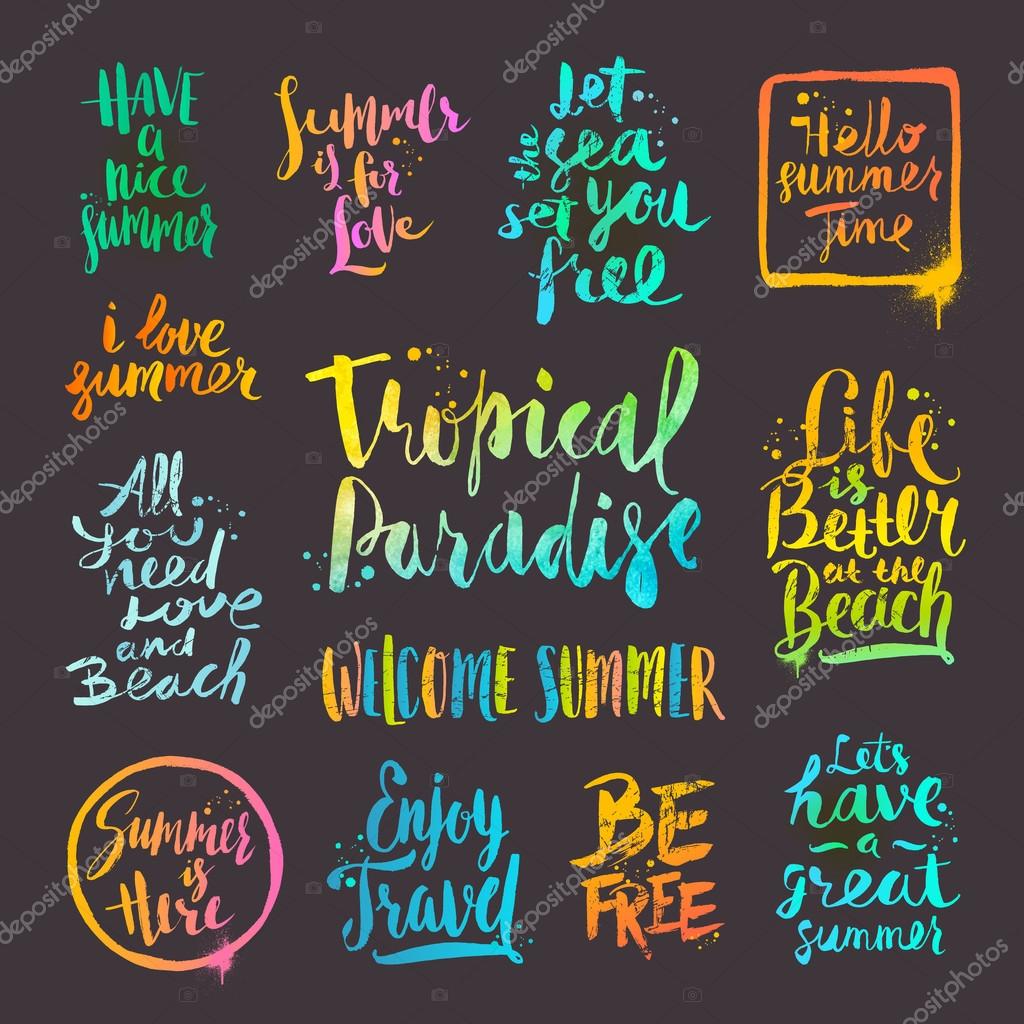 HAVE
a
nice
summer
Summer
is for
Love
Let
the sea
set you
free
Hello
summer
Time
i love
summer
Tropical
Paradise
Life
is
Better
at the
Beach
All
you
need
Love
and
Beach
WELCOME SUMMER
Summer
is
Here
Enjoy
Travel
BE
FREE
Let's
have
a
great
summer
depositphotos